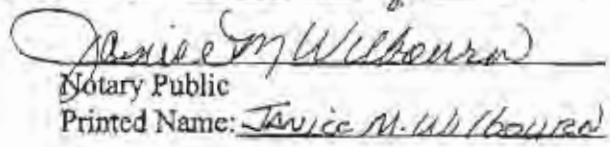 Janice M Wilbourn
Notary Public
Printed Name: Janice M. Wilbourn